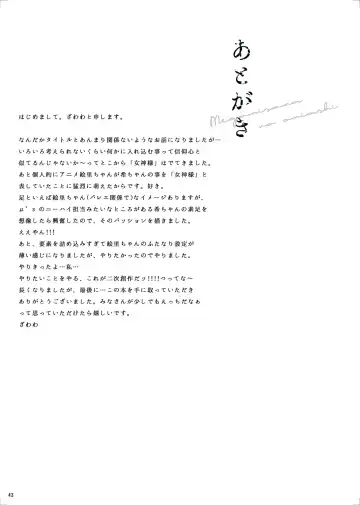 あとがき
Megamisama no omiashi
はじめまして。ざわわと申します。
なんだかタイトルとあんまり関係ないようなお話になりましたが…
いろいろ考えられないくらい何かに入れ込む事って信仰心と
似てるんじゃないか〜ってとこから「女神様」はでてきました。
あと個人的にアニメ絵里ちゃんが希ちゃんの事を「女神様」と
表していたことに猛烈に萌えたからです。好き。
足といえば絵里ちゃん(バレエ関係で)なイメージありますが、
μ'sのニーハイ担当みたいなところがある希ちゃんの素足を
想像したら興奮したので、そのパッションを描きました。
ええやん!!!
あと、要素を詰め込みすぎて絵里ちゃんのふたなり設定が
薄い感じになりましたが、やりたかったのでやりました。
やりきったよ…私…
やりたいことをやる、これが二次創作だッ!!!!ってな〜
長くなりましたが、最後に…この本を手に取っていただき
ありがとうございました。みなさんが少しでもえっちだなぁ
って思っていただけたら嬉しいです。
ざわわ
43